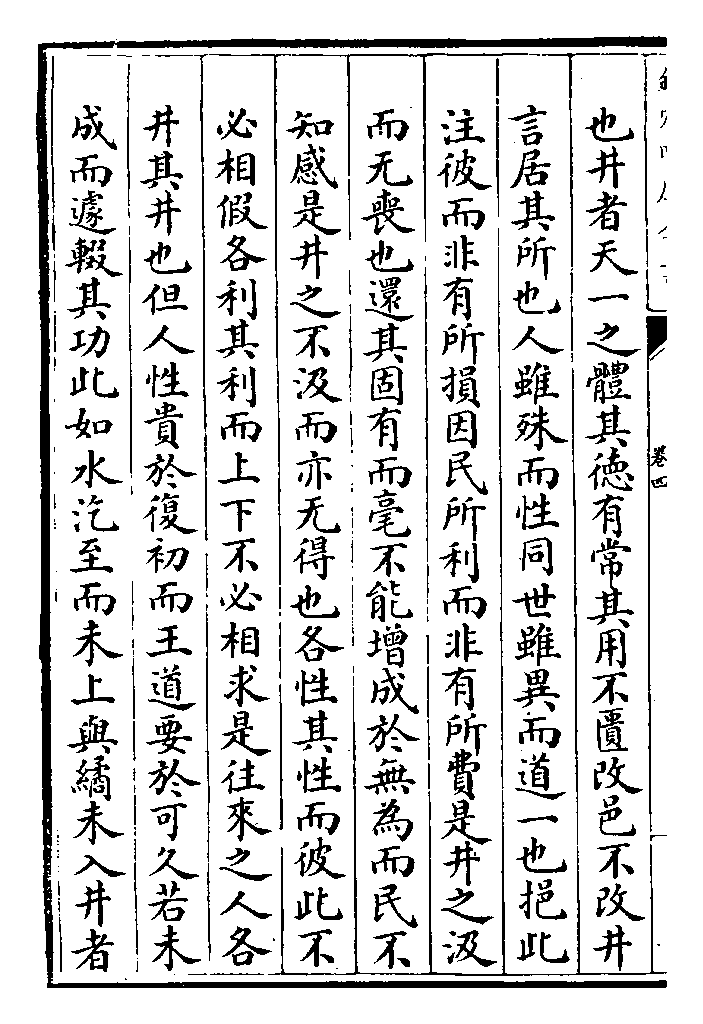 也井者天一之體其徳有常其用不匱改邑不改井
言居其所也人雖殊而性同世雖異而道一也挹此
注彼而非有所損因民所利而非有所費是井之汲
而无喪也還其固有而毫不能增成於無為而民不
知感是井之不汲而亦无得也各性其性而彼此不
必相假各利其利而上下不必相求是往來之人各
井其井也但人性貴於復初而王道要於可久若未
成而遽輟其功此如水汔至而未上與繘未入井者
卷四